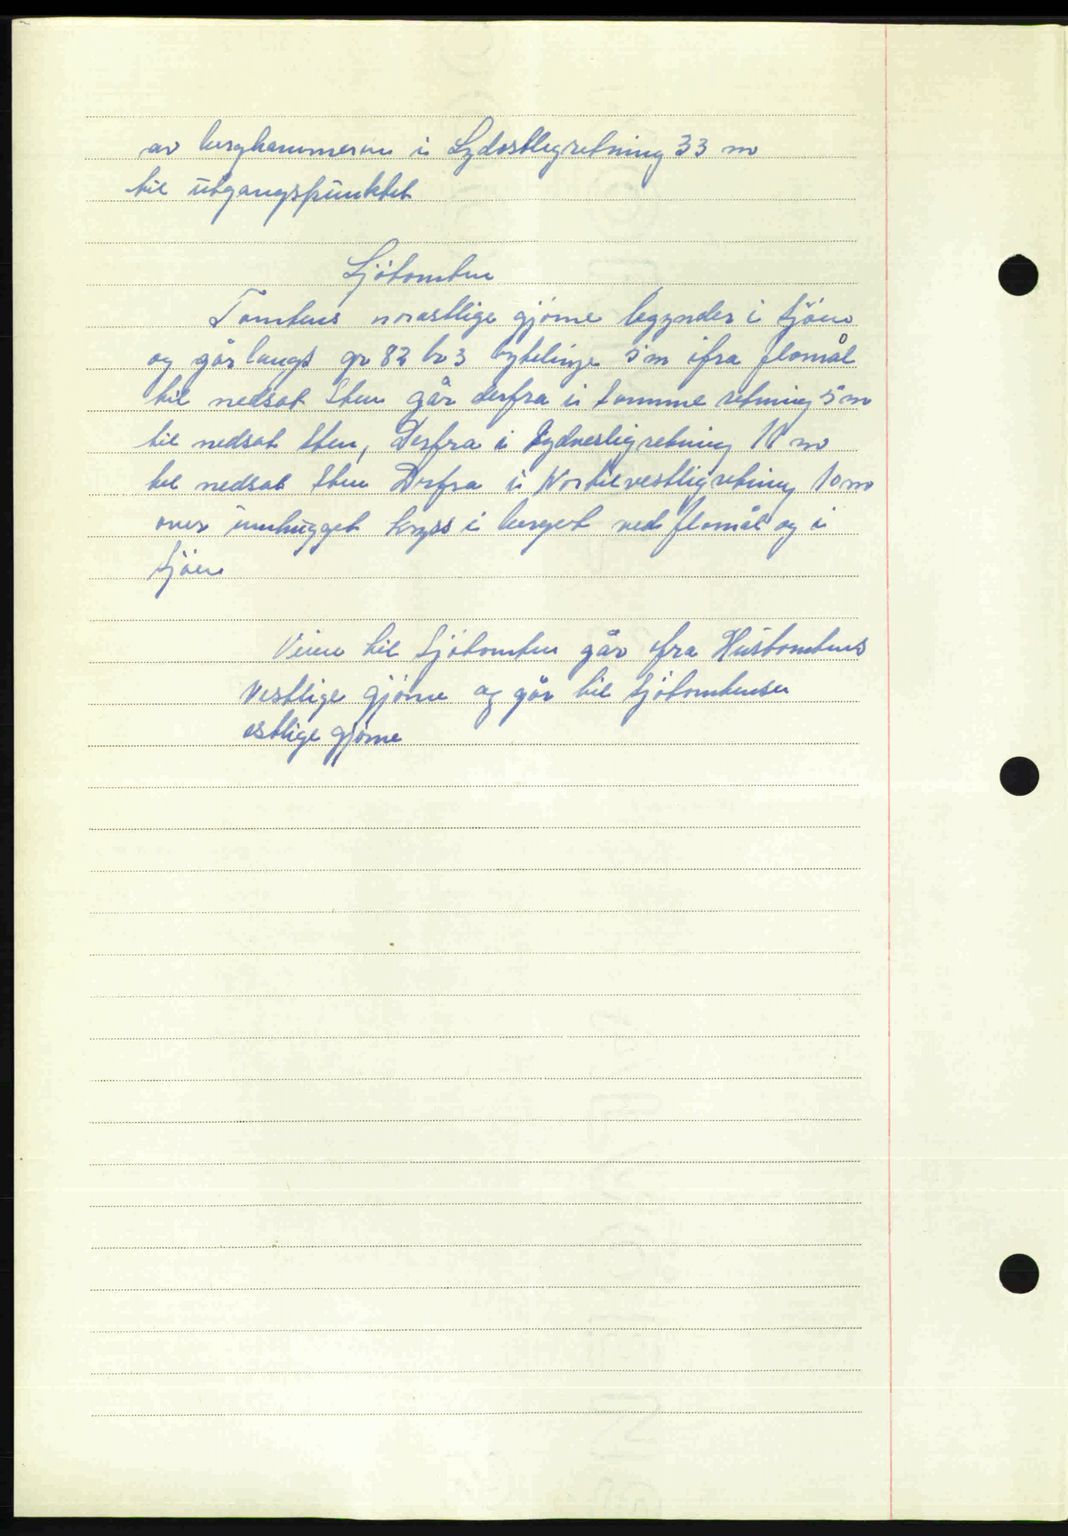 av berghammeren i Sydostligretning 33 m
til utgangspunktet
Sjötomten
Tomtens norastlige gjørne begynder i Sjöen
og går langs gr 82 br 3 bytelinje 5 m ifra flomål
til nedsat Sten går derfra i samme retning 5 m
til nedsat Sten, Derfra i Sydvestligretning 11 m
til nedsat Sten Derfra i Nordvestligretning 10 m
over innhugget kryss i berget ved flomål og i
Sjöen
Veien til Sjötomten går ifra Hustomtens
Vestlige gjørne og går til Sjötomtensen
ostlige gjørne